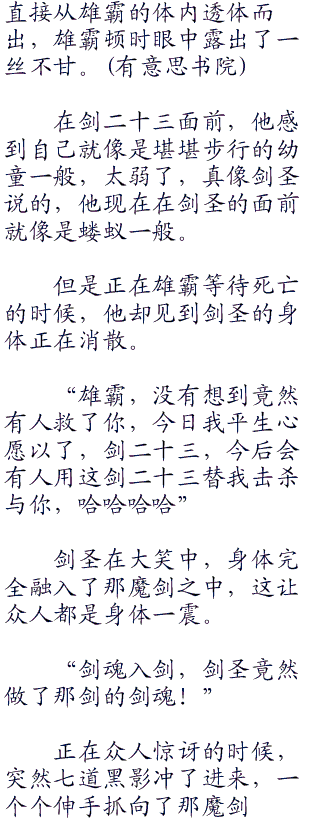 直接从雄霸的体内透体而
出，雄霸顿时眼中露出了一
丝不甘。(有意思书院)
在剑二十三面前，他感
到自己就像是堪堪步行的幼
童一般，太弱了，真像剑圣
说的，他现在在剑圣的面前
就像是蝼蚁一般。
但是正在雄霸等待死亡
的时候，他却见到剑圣的身
体正在消散。
“雄霸，没有想到竟然
有人救了你，今日我平生心
愿以了，剑二十三，今后会
有人用这剑二十三替我击杀
与你，哈哈哈哈”
剑圣在大笑中，身体完
全融入了那魔剑之中，这让
众人都是身体一震。
“剑魂入剑，剑圣竟然
做了那剑的剑魂！”
正在众人惊讶的时候，
突然七道黑影冲了进来，一
个个伸手抓向了那魔剑